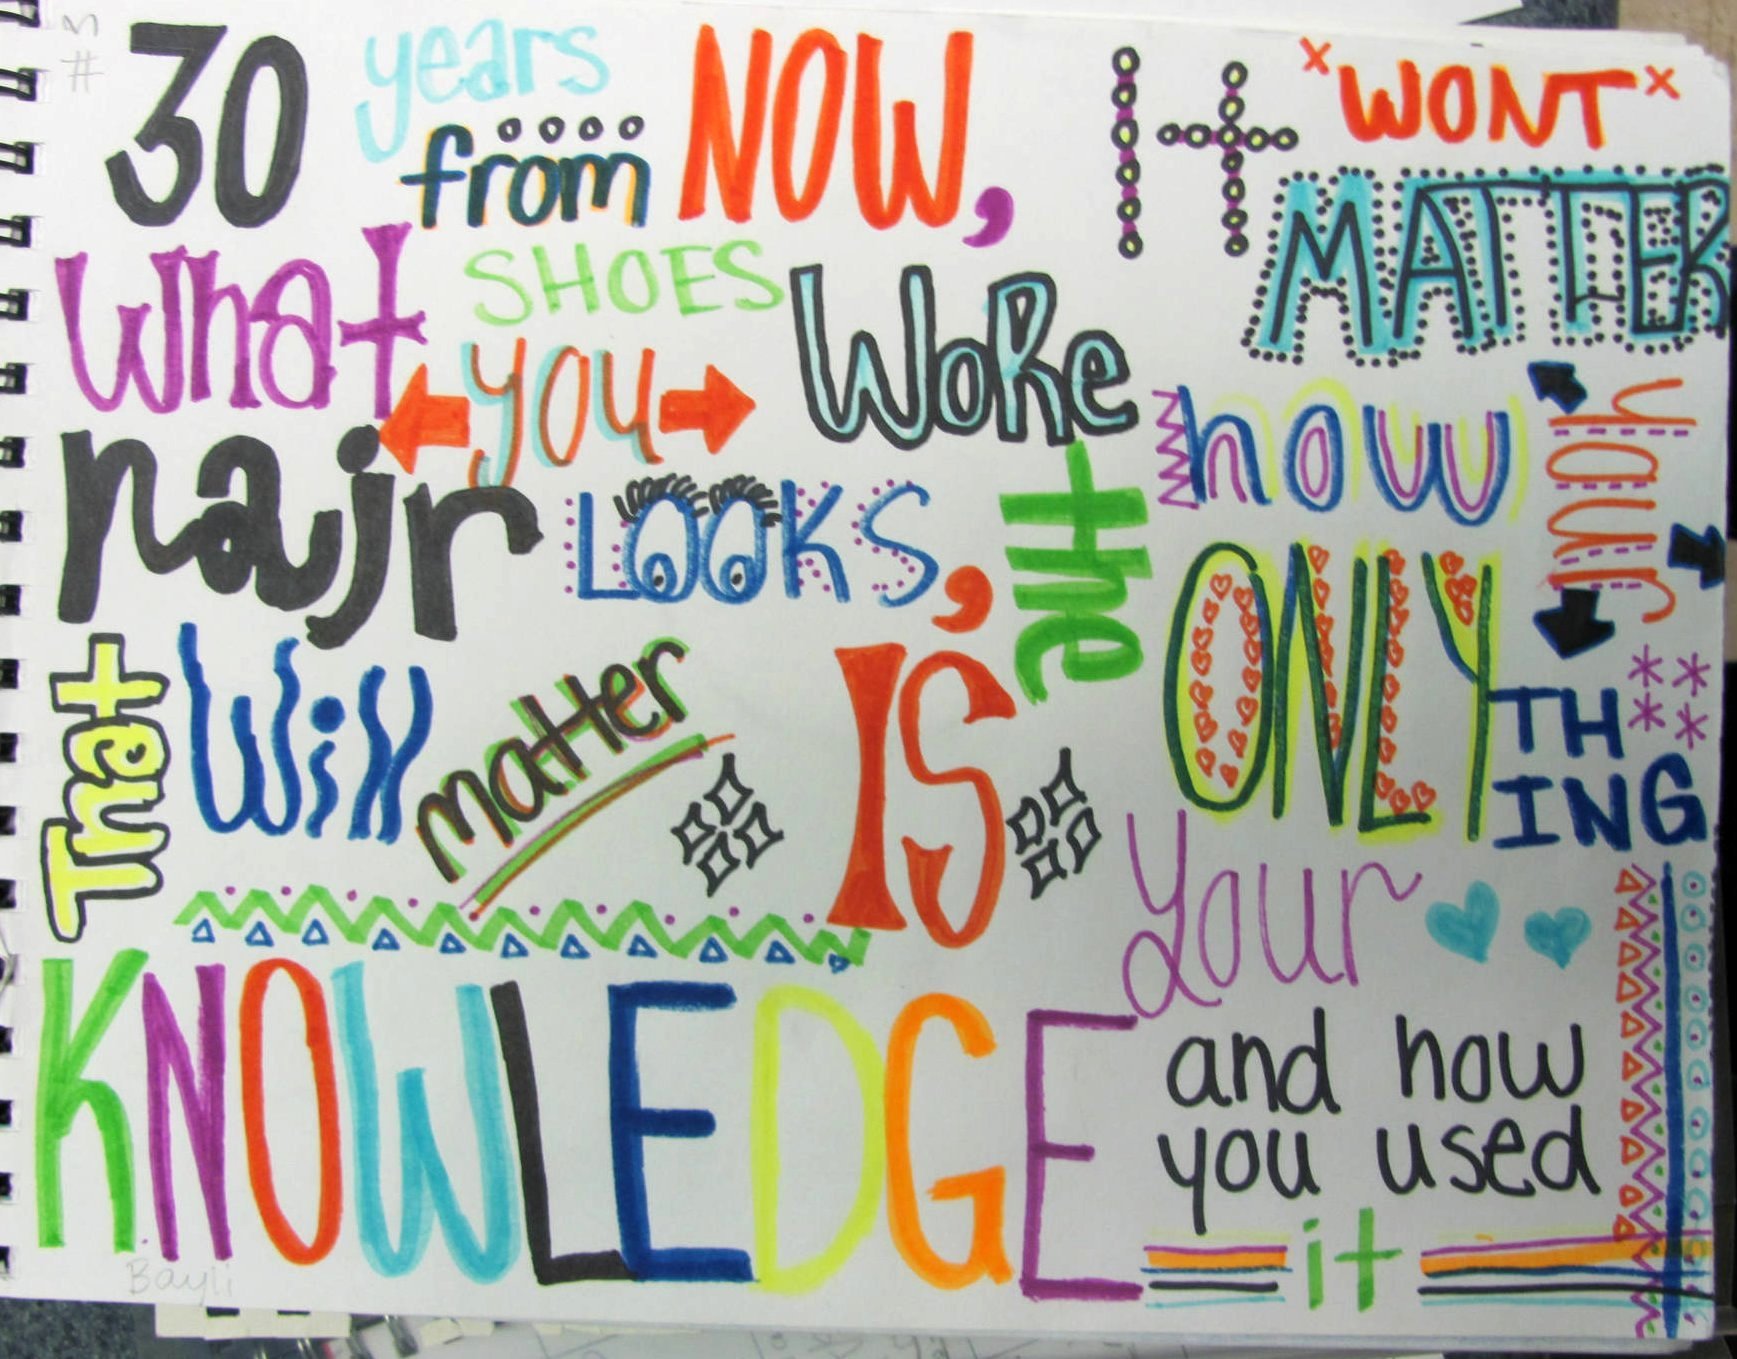 3
#
30 years from NOW, It *WONT*
MATTER
what SHOES
YOU WORE how your
hair LOOKS, the ONLY
THING
That Will matter IS your
KNOWLEDGE
and how
you used
it
Bayli